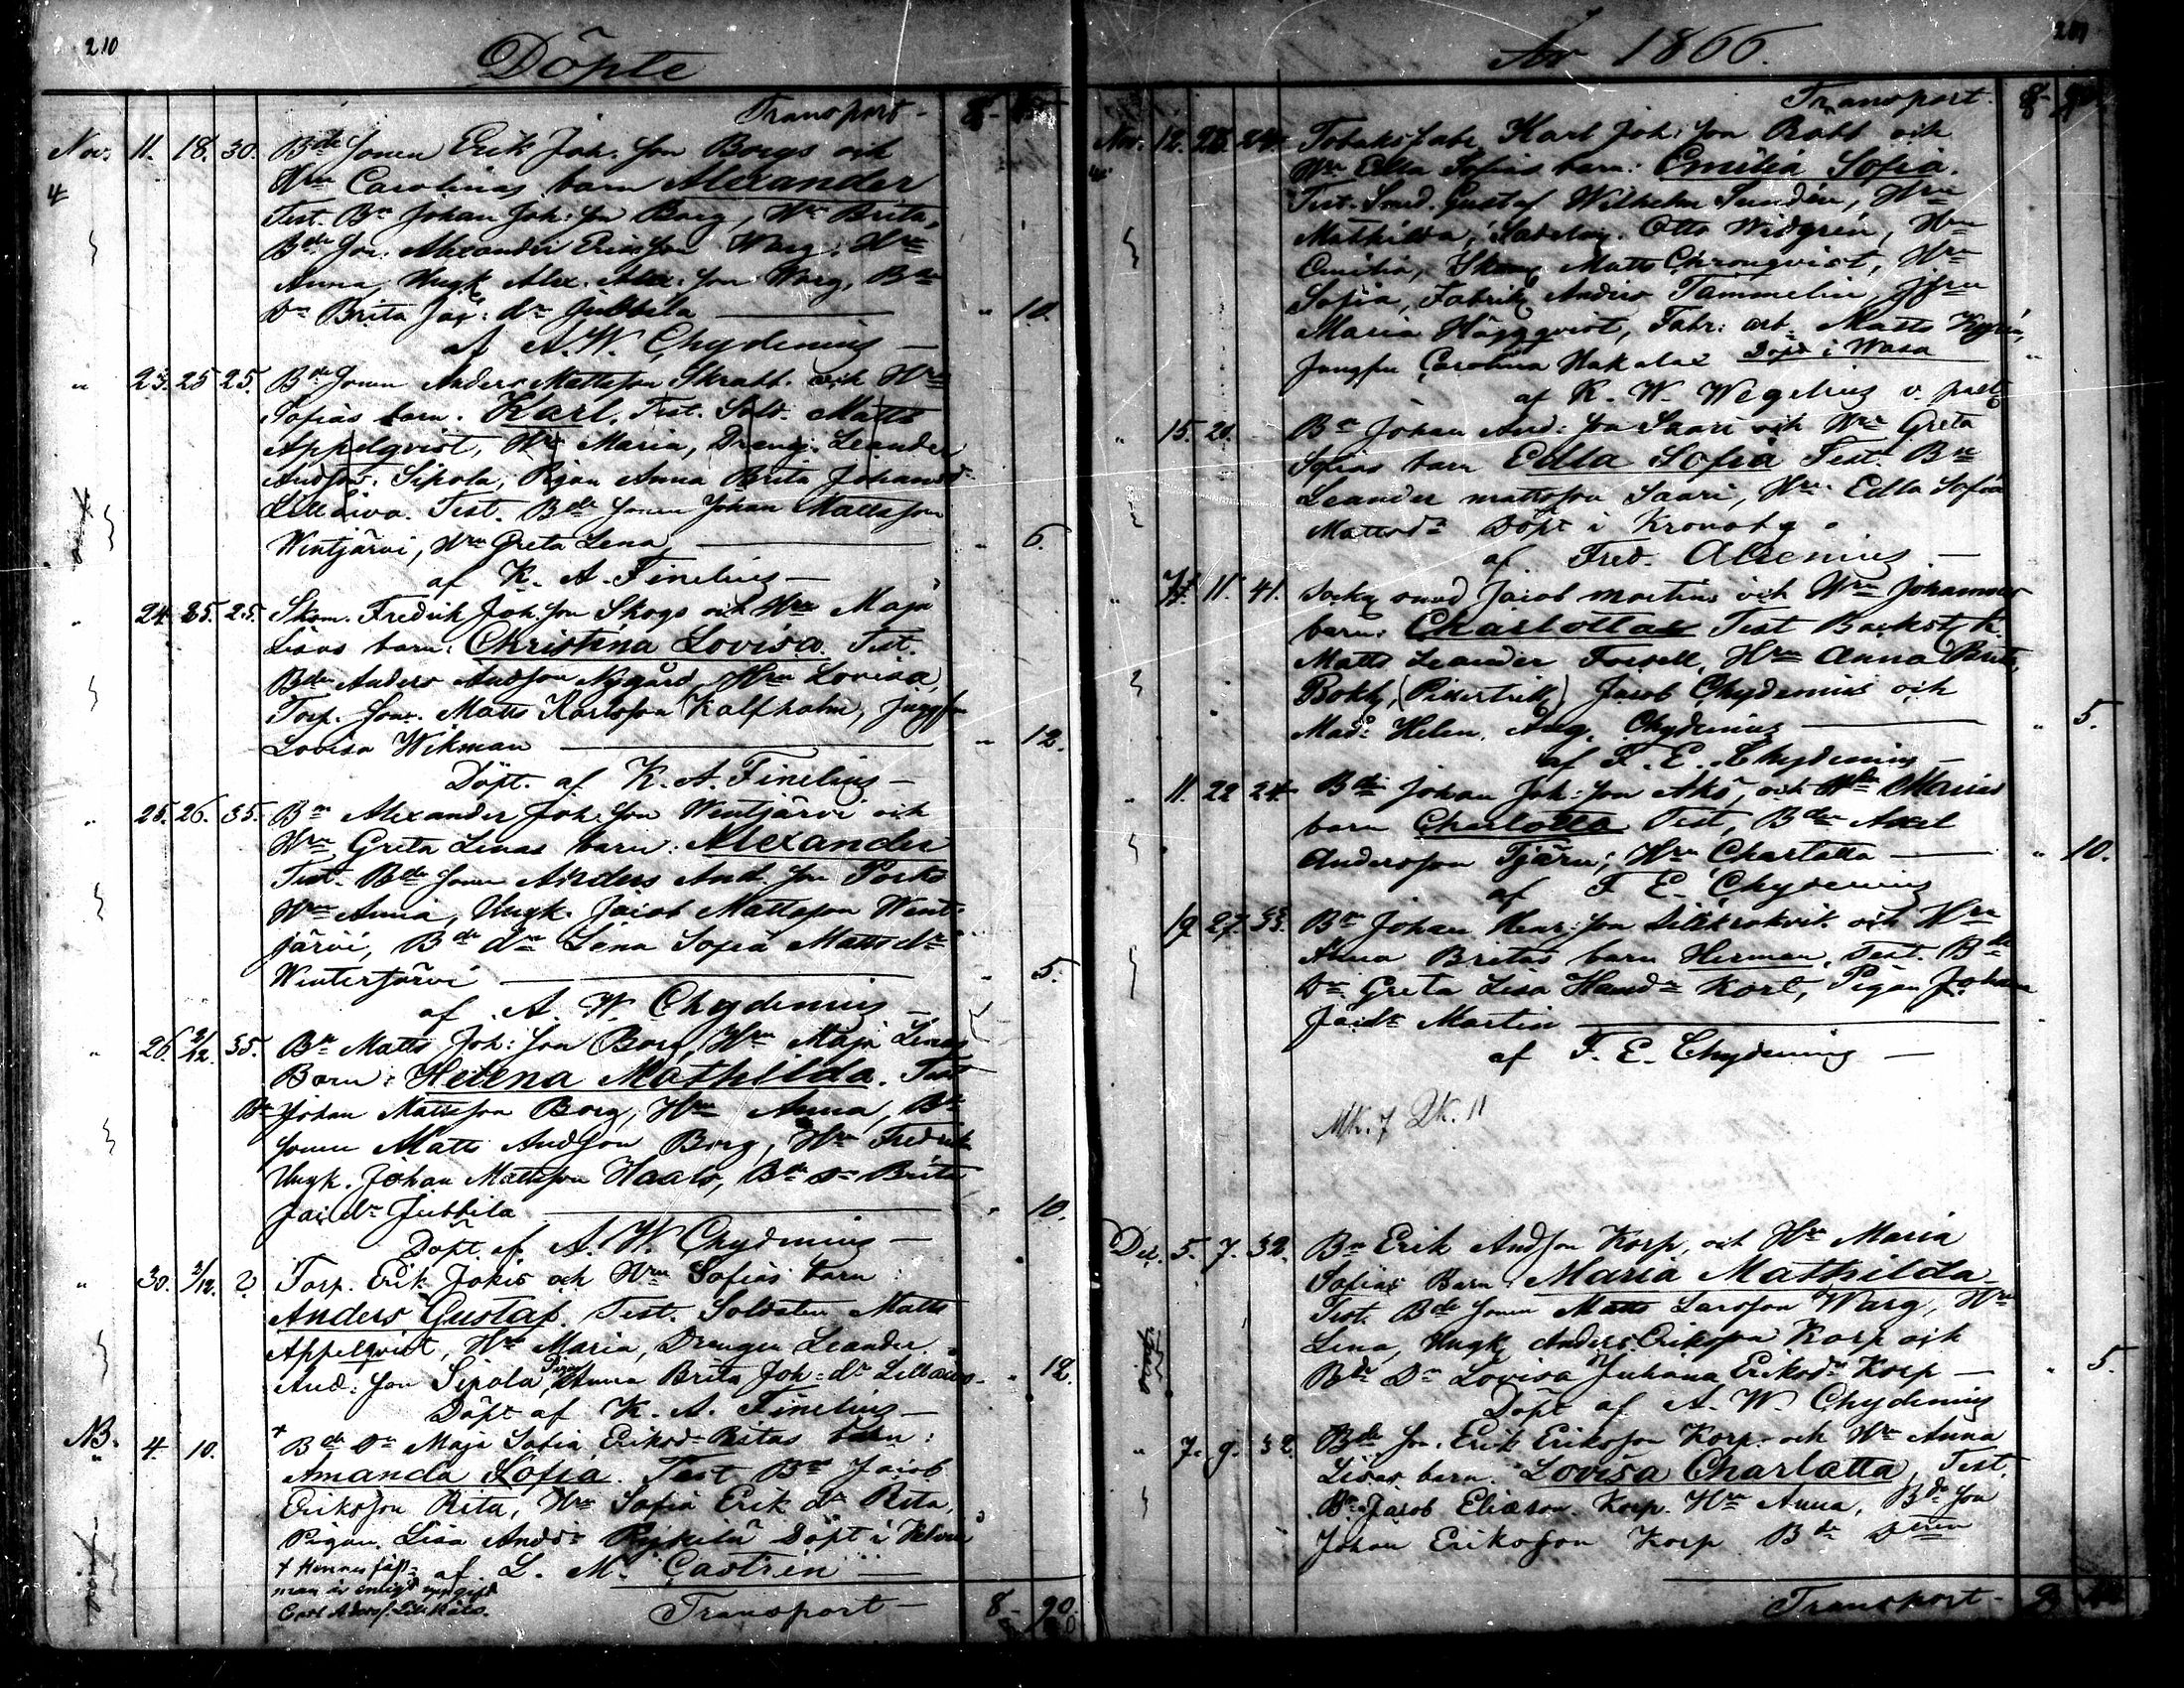 210
Döpte
Transport - 8-
Nov. 11. 18. 30. Bde Sonen Erik Joh: Son Borgs och
4 Hru Carolinas barn Alexander
Test. Bn Johan Joh: Son Borg, Hru Brita,
Bde Son. Alexander Ericsson Warg, Hru
Anna, Ungk Alex. Alex: Son Warg, Bde
dn Brita Jac: dr Jubbila — " 10.
af A. W. Chydenius —
" 23. 25 25. Bde Sonen Anders Mattsson Skrabb. och Hru
Sofias barn. Karl. Test. Sold. Matts
Appelqvist, Hru Maria, Dreng. Leander
Andson. Sipola, Pigan Anna Brita Johansd
Test. Bde Sonen Johan Mattsson
Wintjärvi, Hru Greta Lena — " 6.
af K. A. Finelius —
" 24. 25. 25. Skom. Fredrik Joh. Son Skogs och Hru Maja
Lisas barn: Christina Lovisa. Test.
Bden Anders Andson Nygård, Hru Lovisa,
Torp. Son. Matts Karlsson Kalfholm, Jungfru
Lovisa Wikman — " 12.
Döpt. af K. A. Finelius —
" 25. 26. 35. Bn Alexander Joh: Son Wintjärvi och
Hru Greta Lenas barn: Alexander
Test. Bde Sonen Anders And. Son Porko
Hru Anna, Ungk. Jacob Mattsson Went-
järvi, Bde dn Lena Sofia Mattsdr
Winterjärvi — " 5.
af A. W. Chydenius —
" 26. 2/12. 35. Bn Matts Joh: Son Borg, Hru Maja Lenas
Barn: Helena Mathilda. Test
Bn Johan Mattsson Borg, Hru Anna, Bde
Sonen Matts Andson Borg, Hru Fredrik
Ungk. Johan Mattsson Haals, Bde dn Brita
Jac dr Jubbila — " 10.
Döpt af A. W. Chydenius —
" 30. 2/12. 2 Torp. Erik Jokis och Hru Sofias barn:
Anders Gustaf. Test. Soldaten Matts
Appelqvist, Hru Maria, Drengen Leander
And: Son Sipola, Pigan Anna Brita Joh: dr — " 12.
Döpt af K. A. Finelius —
NB. " 4. 10. + Bde Dn Maja Sofia Eriksdr Ritas barn:
Amanda Sofia. Test Bn Jacob
Eriksson Rita, Hru Sofia Erik dr Rita,
Pigan Lisa Andsdr Döpt i
af L. M. Castrén —
+ Hennes fäst-
man är enligt uppgift
Transport — 8- 90
År 1866.
Transport - 8-
Nov. 12. 24. Tobaksfabr. Karl Joh: Son Råbb och
Hru Edla Sofias barn: Emilia Sofia.
Test. Smed. Gustaf Wilhelm Sundén, Hru
Mathilda, Sadelm. Otto Widgrén, Hru
Emilia, Skom. Matts Chronqvist, Hru
Sofia, Fabrik. Anders Tammelin, Jfru
Maria Häggqvist, Fabr: arb. Matts
Jungfru Carolina Hakalax Döpt i Wasa — "
af K. W. Wegelius v. past.
" 15. 20. Bn Johan And: Son Saari och Hru Greta
Sofias barn Edla Sofia Test. Bn
Leander mattsson Saari, Hru Edla Sofia
Mattsdr Döpt i Kronoby.
af Fred. Alcenius —
" 11. 41. Socky smed Jacob Martins och Hru Johannas
barn: Charlotta Test
Matts Leander Forsell, Hru Anna Brita,
Bokh. Jacob Chydenius och
Mad: Helen. Aug. Chydenius — " 5.
af F. E. Chydenius —
" 11. 22 24. Bde Johan Joh: Son och Hru Marias
barn Charlotta Test, Bden Axel
Andersson Tjäru, Hru Charlotta — " 10.
af F. E. Chydenius
19 27. 33. Bn Johan Henr: Son Lillkrokvik och Hru
Anna Britas barn Herman. Test. Bde
Dn Greta Lisa Hansdr Kort, Pigan Johanna
Jacdr Martin —
af F. E. Chydenius —
Mk. 7 Qk. 11
Dec. 5. 7. 32. Bn Erik Andson Korp, och Hru Maria
Sofias Barn: Maria Mathilda
Test. Bde Sonen Matts Larsson Warg, Hru
Lena, Ungk Anders Eriksson Korp och
Bde Dn Lovisa Juliana Eriksdr Korp — " 5.
Döpt af A. W. Chydenius
" 7. 9. 32. Bde Son. Erik Eriksson Korp. och Hru Anna
Lisas barn. Lovisa Charlotta, Test.
Bn Jacob Eliæson Korp. Hru Anna, Bde Son
Johan Eriksson Korp Bde Dtren
Transport -